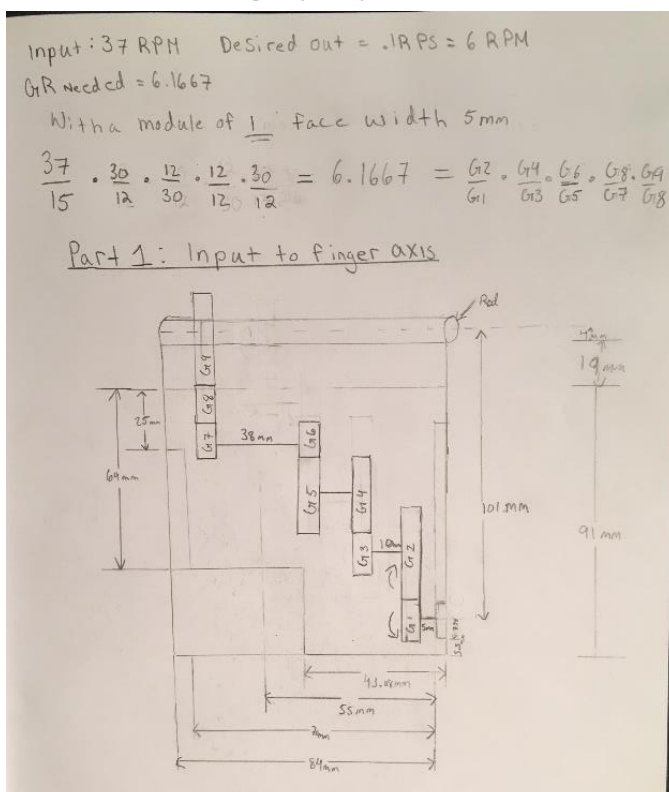 Input: 37 RPM Desired out = .1RPS = 6 RPM
GR Needed = 6.1667
With a module of 1 face width 5mm
37/15 · 30/12 · 12/30 · 12/12 · 30/12 = 6.1667 = G2/G1 · G4/G3 · G6/G5 · G8/G7 · G9/G8
Part 1: Input to finger axis
Rod
G9
19mm
G8
25mm
G7
38mm
G6
69mm
G5
G4
101mm
G3
G2
91 mm
G1
5mm
55mm
84mm